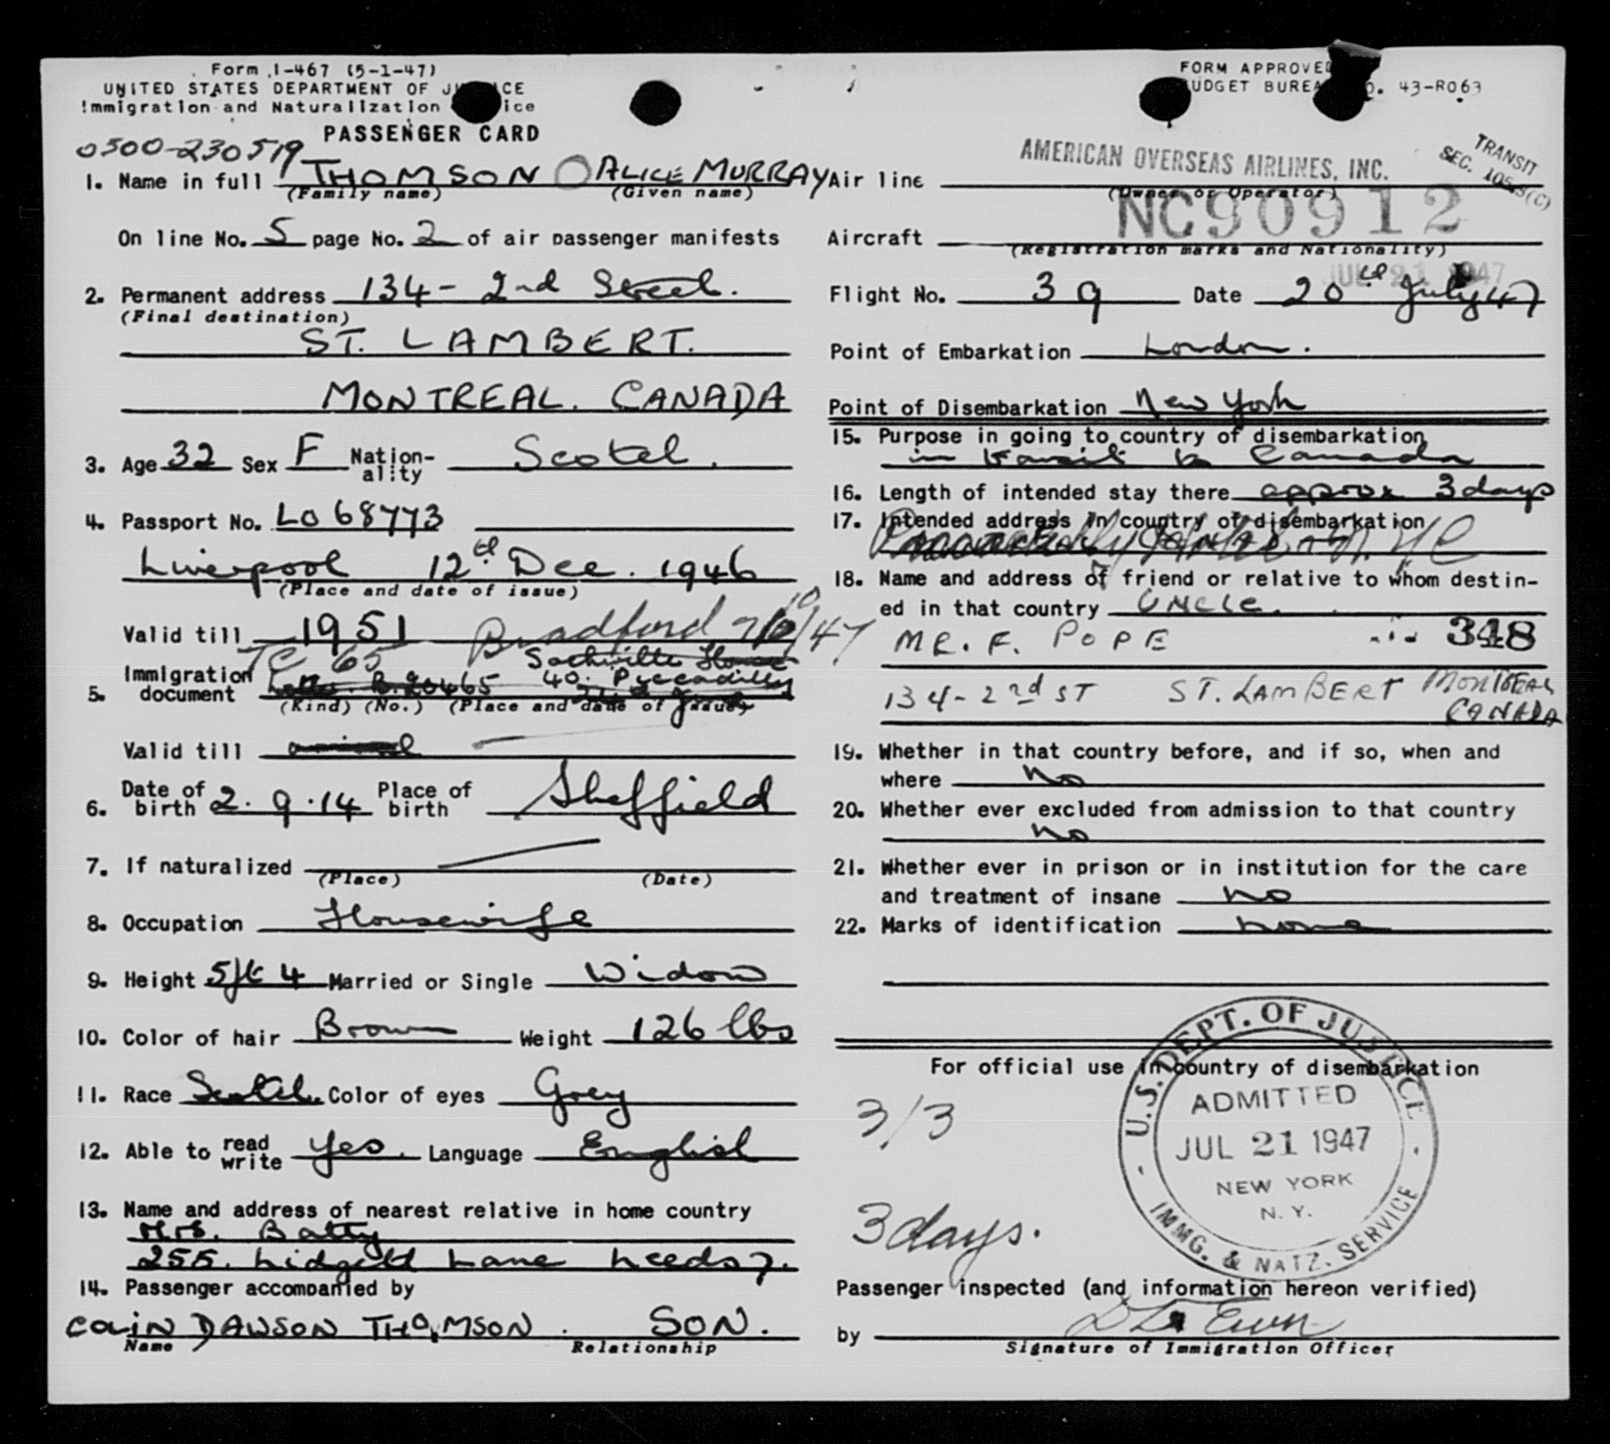 Form I-467 (5-1-47)
UNITED STATES DEPARTMENT OF
Immigration and Naturalization
PASSENGER CARD
FORM APPROVED
BUDGET BUREAU NO. 43-R063
0300-230519
AMERICAN OVERSEAS AIRLINES, INC.
TRANSIT
SEC.
1. Name in full THOMSON ALICE MURRAY
(Family name) (Given name)
On line No. 5 page No. 2 of air passenger manifests
2. Permanent address 134 - 2nd Street.
(Final destination)
ST. LAMBERT.
MONTREAL. CANADA
3. Age 32 Sex F Nation-ality Scotch.
4. Passport No. LO 68773
Liverpool 12th Dec. 1946
(Place and date of issue)
Valid till 1951 Bradford
TC 65 Sackville House
5. Immigration document 40. Piccadilly
(Kind) (No.) (Place and date of issue)
Valid till
6. Date of birth 2.9.14 Place of birth Sheffield
7. If naturalized
(Place) (Date)
8. Occupation Housewife
9. Height 5ft 4 Married or Single Widow
10. Color of hair Brown Weight 126 lbs
11. Race Scotch. Color of eyes Grey
12. Able to read write Yes. Language English
13. Name and address of nearest relative in home country
Mrs. Batty
255. Lidgett Lane Leeds 7.
14. Passenger accompanied by
COLIN DAWSON THOMSON. SON.
Name Relationship
Air line
(Owner or Operator)
NC90912
Aircraft
(Registration marks and Nationality)
JUL 21 1947
Flight No. 39 Date 20th July 47
Point of Embarkation London.
Point of Disembarkation New York
15. Purpose in going to country of disembarkation
in transit to Canada
16. Length of intended stay there approx 3 days
17. Intended address in country of disembarkation
18. Name and address of friend or relative to whom destin-
ed in that country UNCLE.
MR. F. POPE 348
134 - 2nd ST ST. LAMBERT MONTREAL
CANADA
19. Whether in that country before, and if so, when and
where No
20. Whether ever excluded from admission to that country
No
21. Whether ever in prison or in institution for the care
and treatment of insane No
22. Marks of identification none
For official use in country of disembarkation
3/3
3 days.
U.S. DEPT. OF JUSTICE
ADMITTED
JUL 21 1947
NEW YORK
N.Y.
IMMG. & NATZ. SERVICE
Passenger inspected (and information hereon verified)
by
Signature of Immigration Officer